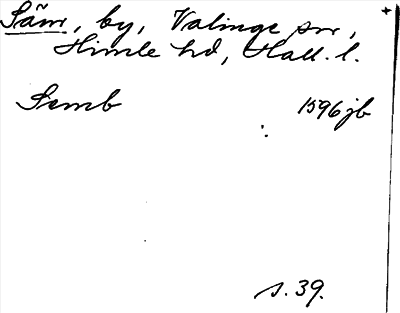 Säm, by, Valinge sn,
Himle hd, Hall. l.
Semb 1596 jb
s. 39.